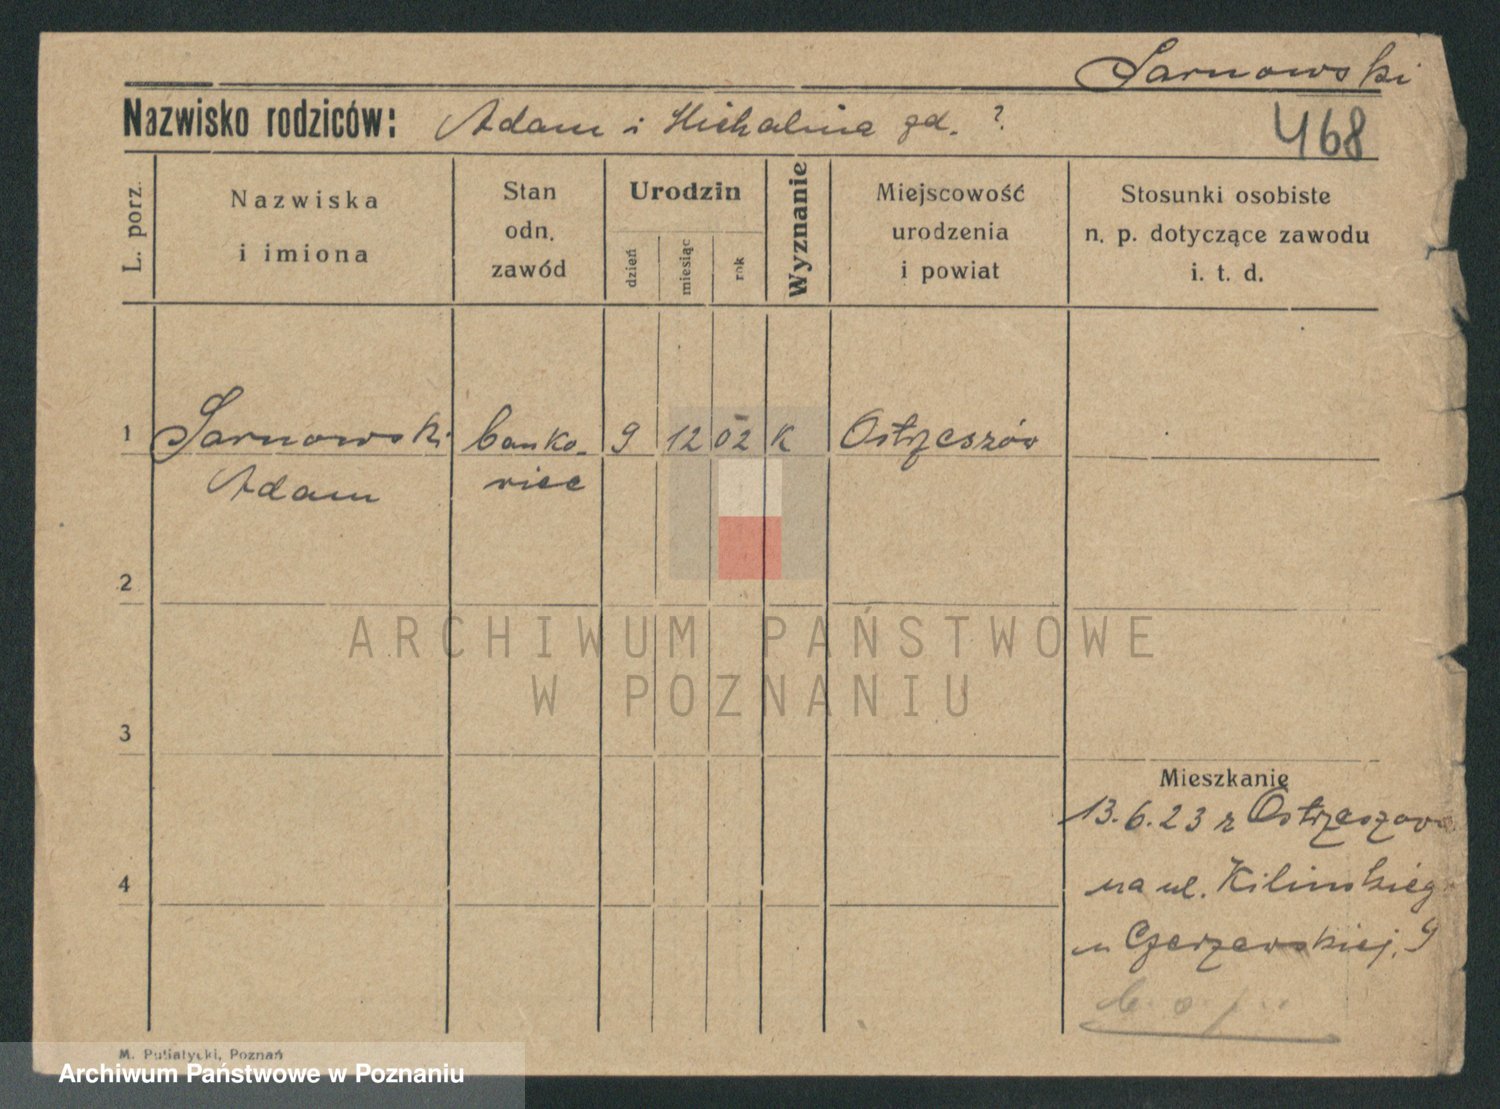 Sarnowski
Nazwisko rodziców: Adam i Michalina zd. ?
468
L. porz.
Nazwiska
i imiona
Stan
odn.
zawód
Urodzin
dzień
miesiąc
rok
Wyznanie
Miejscowość
urodzenia
i powiat
Stosunki osobiste
n. p. dotyczące zawodu
i. t. d.
1 Sarnowski banko- 9 12 02 K Ostrzeszów
Adam wiec
2
ARCHIWUM PAŃSTWOWE
W POZNANIU
3
Mieszkanie
13.6.23 z Ostrzeszowa
4
na ul. Kilińskieg
u Czerzewskiej, 9
M. Putiatycki, Poznań
Archiwum Państwowe w Poznaniu